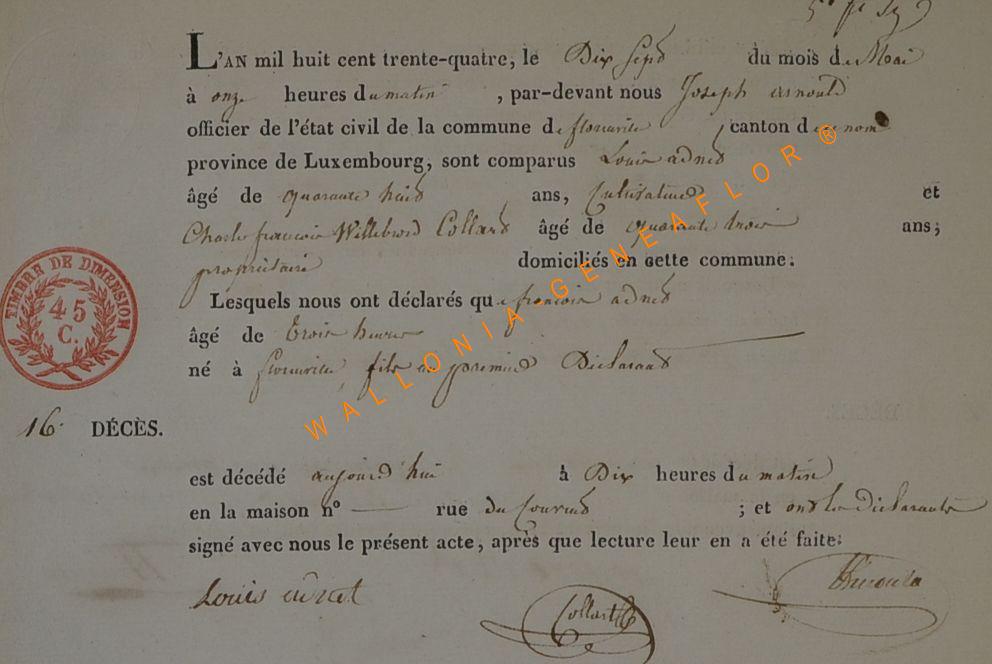 L'AN mil huit cent trente-quatre, le Dix Sept du mois de Mai
à onze heures du matin, par-devant nous Joseph arnould
officier de l'état civil de la commune de florenville, canton de ce nom
province de Luxembourg, sont comparus Louis adnet
âgé de quarante huit ans, Cultivateur et
Charles françois Willebrord Collard âgé de quarante trois ans;
propriétaire domiciliés en cette commune.
Lesquels nous ont déclarés que françois adnet
âgé de trois heures
né à florenville fils du premier Déclarant
TIMBRE DE DIMENSION
45
C.
16. DÉCÈS.
est décédé aujourd'hui à Dix heures du matin
en la maison nº — rue du ; et ont les Déclarants
signé avec nous le présent acte, après que lecture leur en a été faite:
Louis adnet
Collard
WALLONIA-GENEAFLOR ®